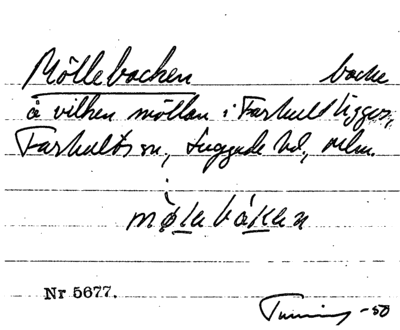 Möllebacken backe
å vilken möllan i Farhult ligger,
Farhults sn, Luggude hd, mlm.
möllebakken
Nr 5677.
-50